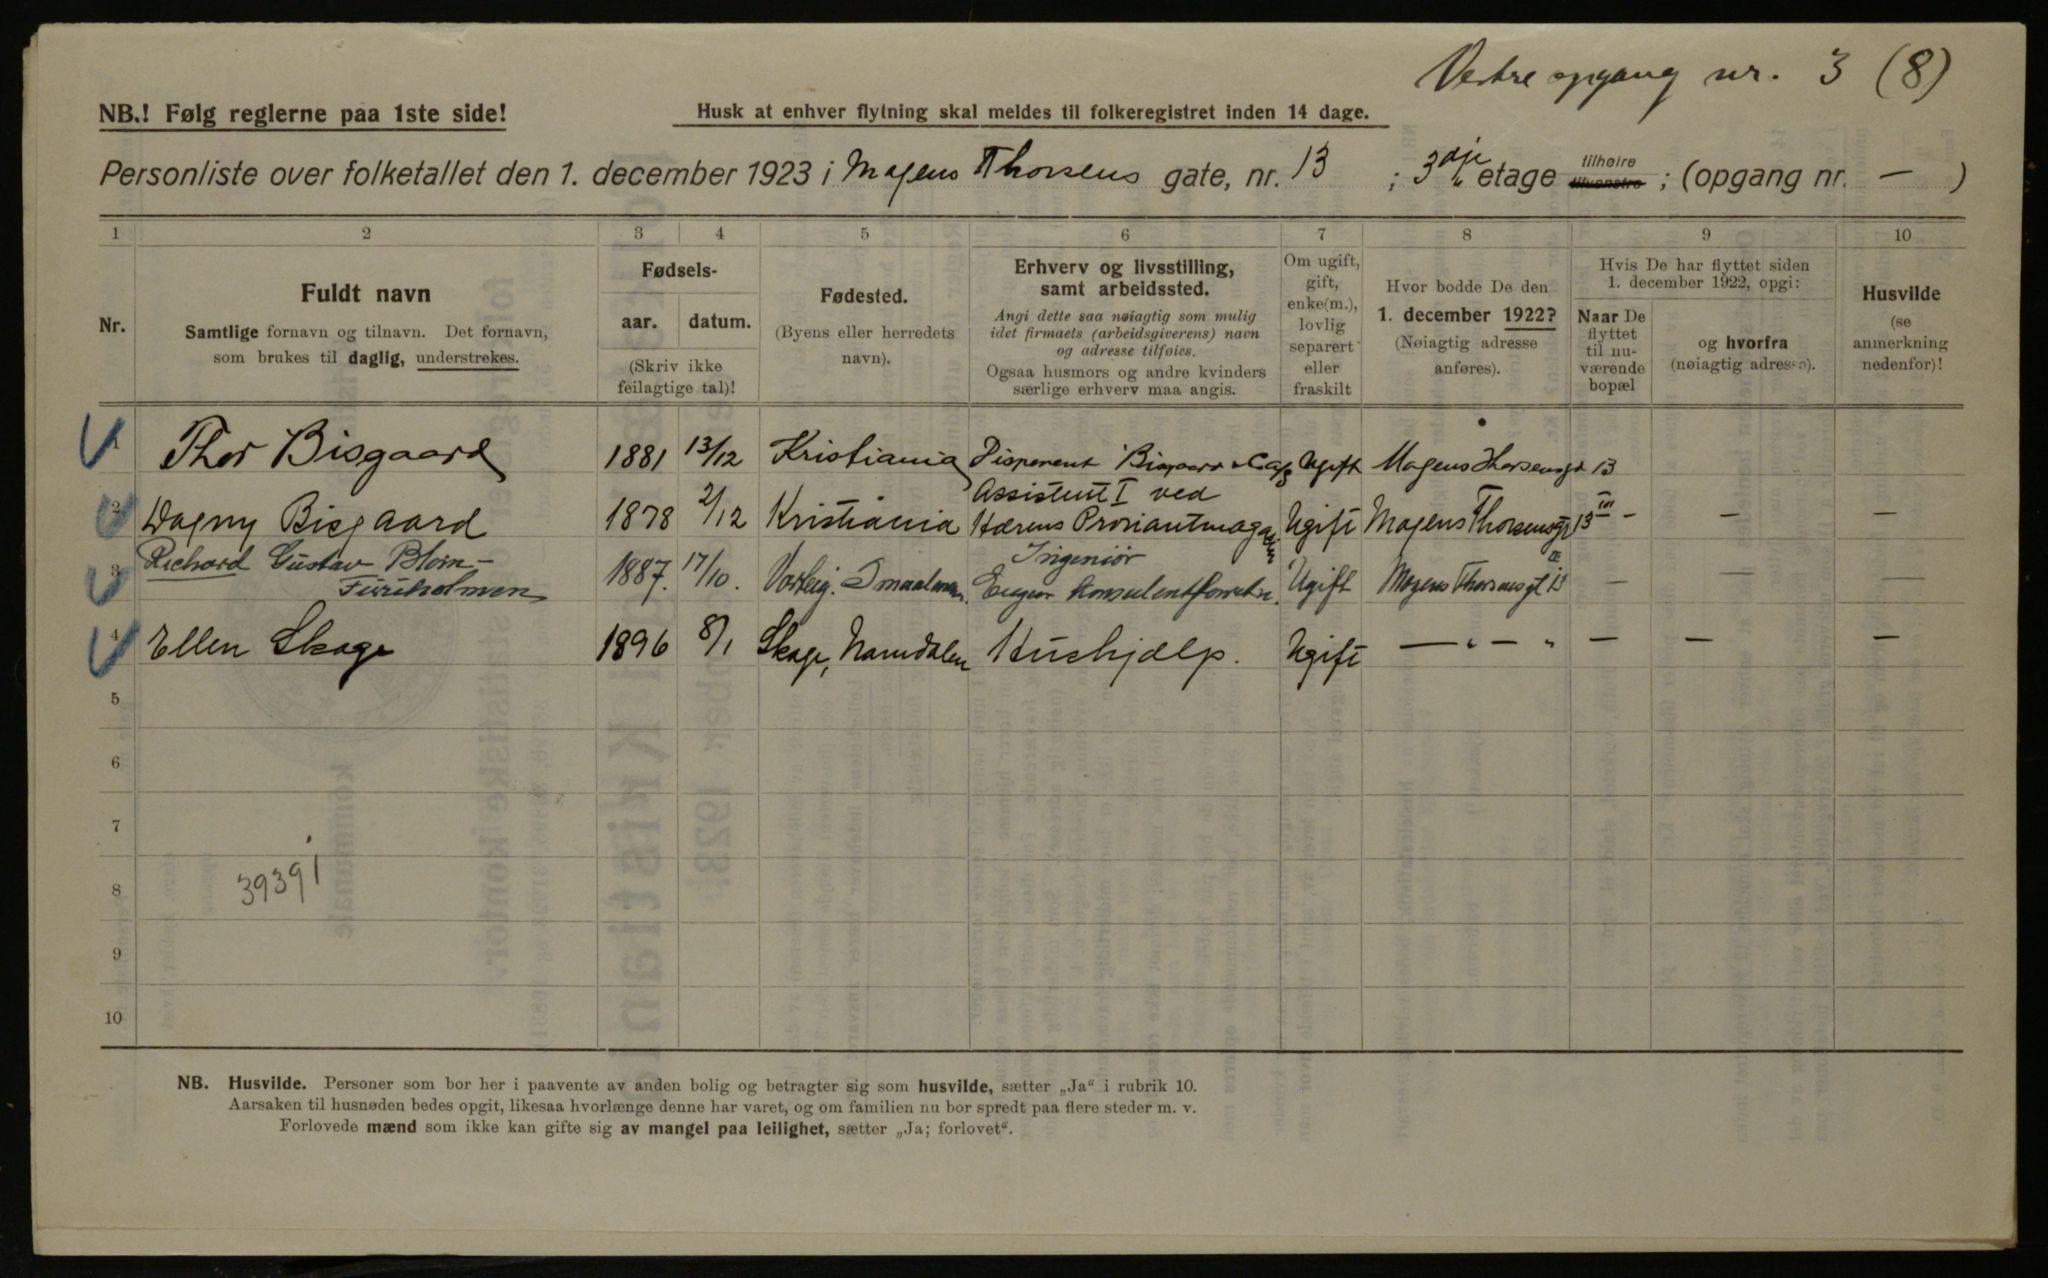 Vestre opgang nr. 3 (8)
NB.! Følg reglerne paa 1ste side!
Husk at enhver flytning skal meldes til folkeregistret inden 14 dage.
Personliste over folketallet den 1. december 1923 i Mogens Thorsens gate, nr. 13 ; 3dje etage tilhøire tilvenstre ; (opgang nr. — )
1 2 3 4 5 6 7 8 9 10
Nr.
Fuldt navn
Samtlige fornavn og tilnavn. Det fornavn,
som brukes til daglig, understrekes.
Fødsels-
aar. datum.
(Skriv ikke
feilagtige tal)!
Fødested.
(Byens eller herredets
navn).
Erhverv og livsstilling,
samt arbeidssted.
Angi dette saa nøiagtig som mulig
idet firmaets (arbeidsgiverens) navn
og adresse tilføies.
Ogsaa husmors og andre kvinders
særlige erhverv maa angis.
Om ugift,
gift,
enke(m.),
lovlig
separert
eller
fraskilt
Hvor bodde De den
1. december 1922?
(Nøiagtig adresse
anføres).
Hvis De har flyttet siden
1. december 1922, opgi:
Naar De
flyttet
til nu-
værende
bopæl
og hvorfra
(nøiagtig adresse).
Husvilde
(se
anmerkning
nedenfor)!
1 Thor Bisgaard 1881 13/12 Kristiania Disponent Bisgaard & Co Ugift Mogens Thorsensgt 13
2 Dagny Bisgaard 1878 2/12 Kristiania Assistent I ved
Hærens Proviantmagasin Ugift Mogens Thorsensgt 13 III — — —
3 Richard Gustav Blom-
Furuholmen 1887. 17/10. Ingeniør
Ugift Mogens Thorsensgt 13 III — — —
4 Ellen Skage 1896 8/1 Skage, Namdalen Hushjælp. Ugift — „ — „ — — —
5
6
7
8
39391
9
10
NB. Husvilde. Personer som bor her i paavente av anden bolig og betragter sig som husvilde, sætter „Ja“ i rubrik 10.
Aarsaken til husnøden bedes opgit, likesaa hvorlænge denne har varet, og om familien nu bor spredt paa flere steder m. v.
Forlovede mænd som ikke kan gifte sig av mangel paa leilighet, sætter „Ja; forlovet“.